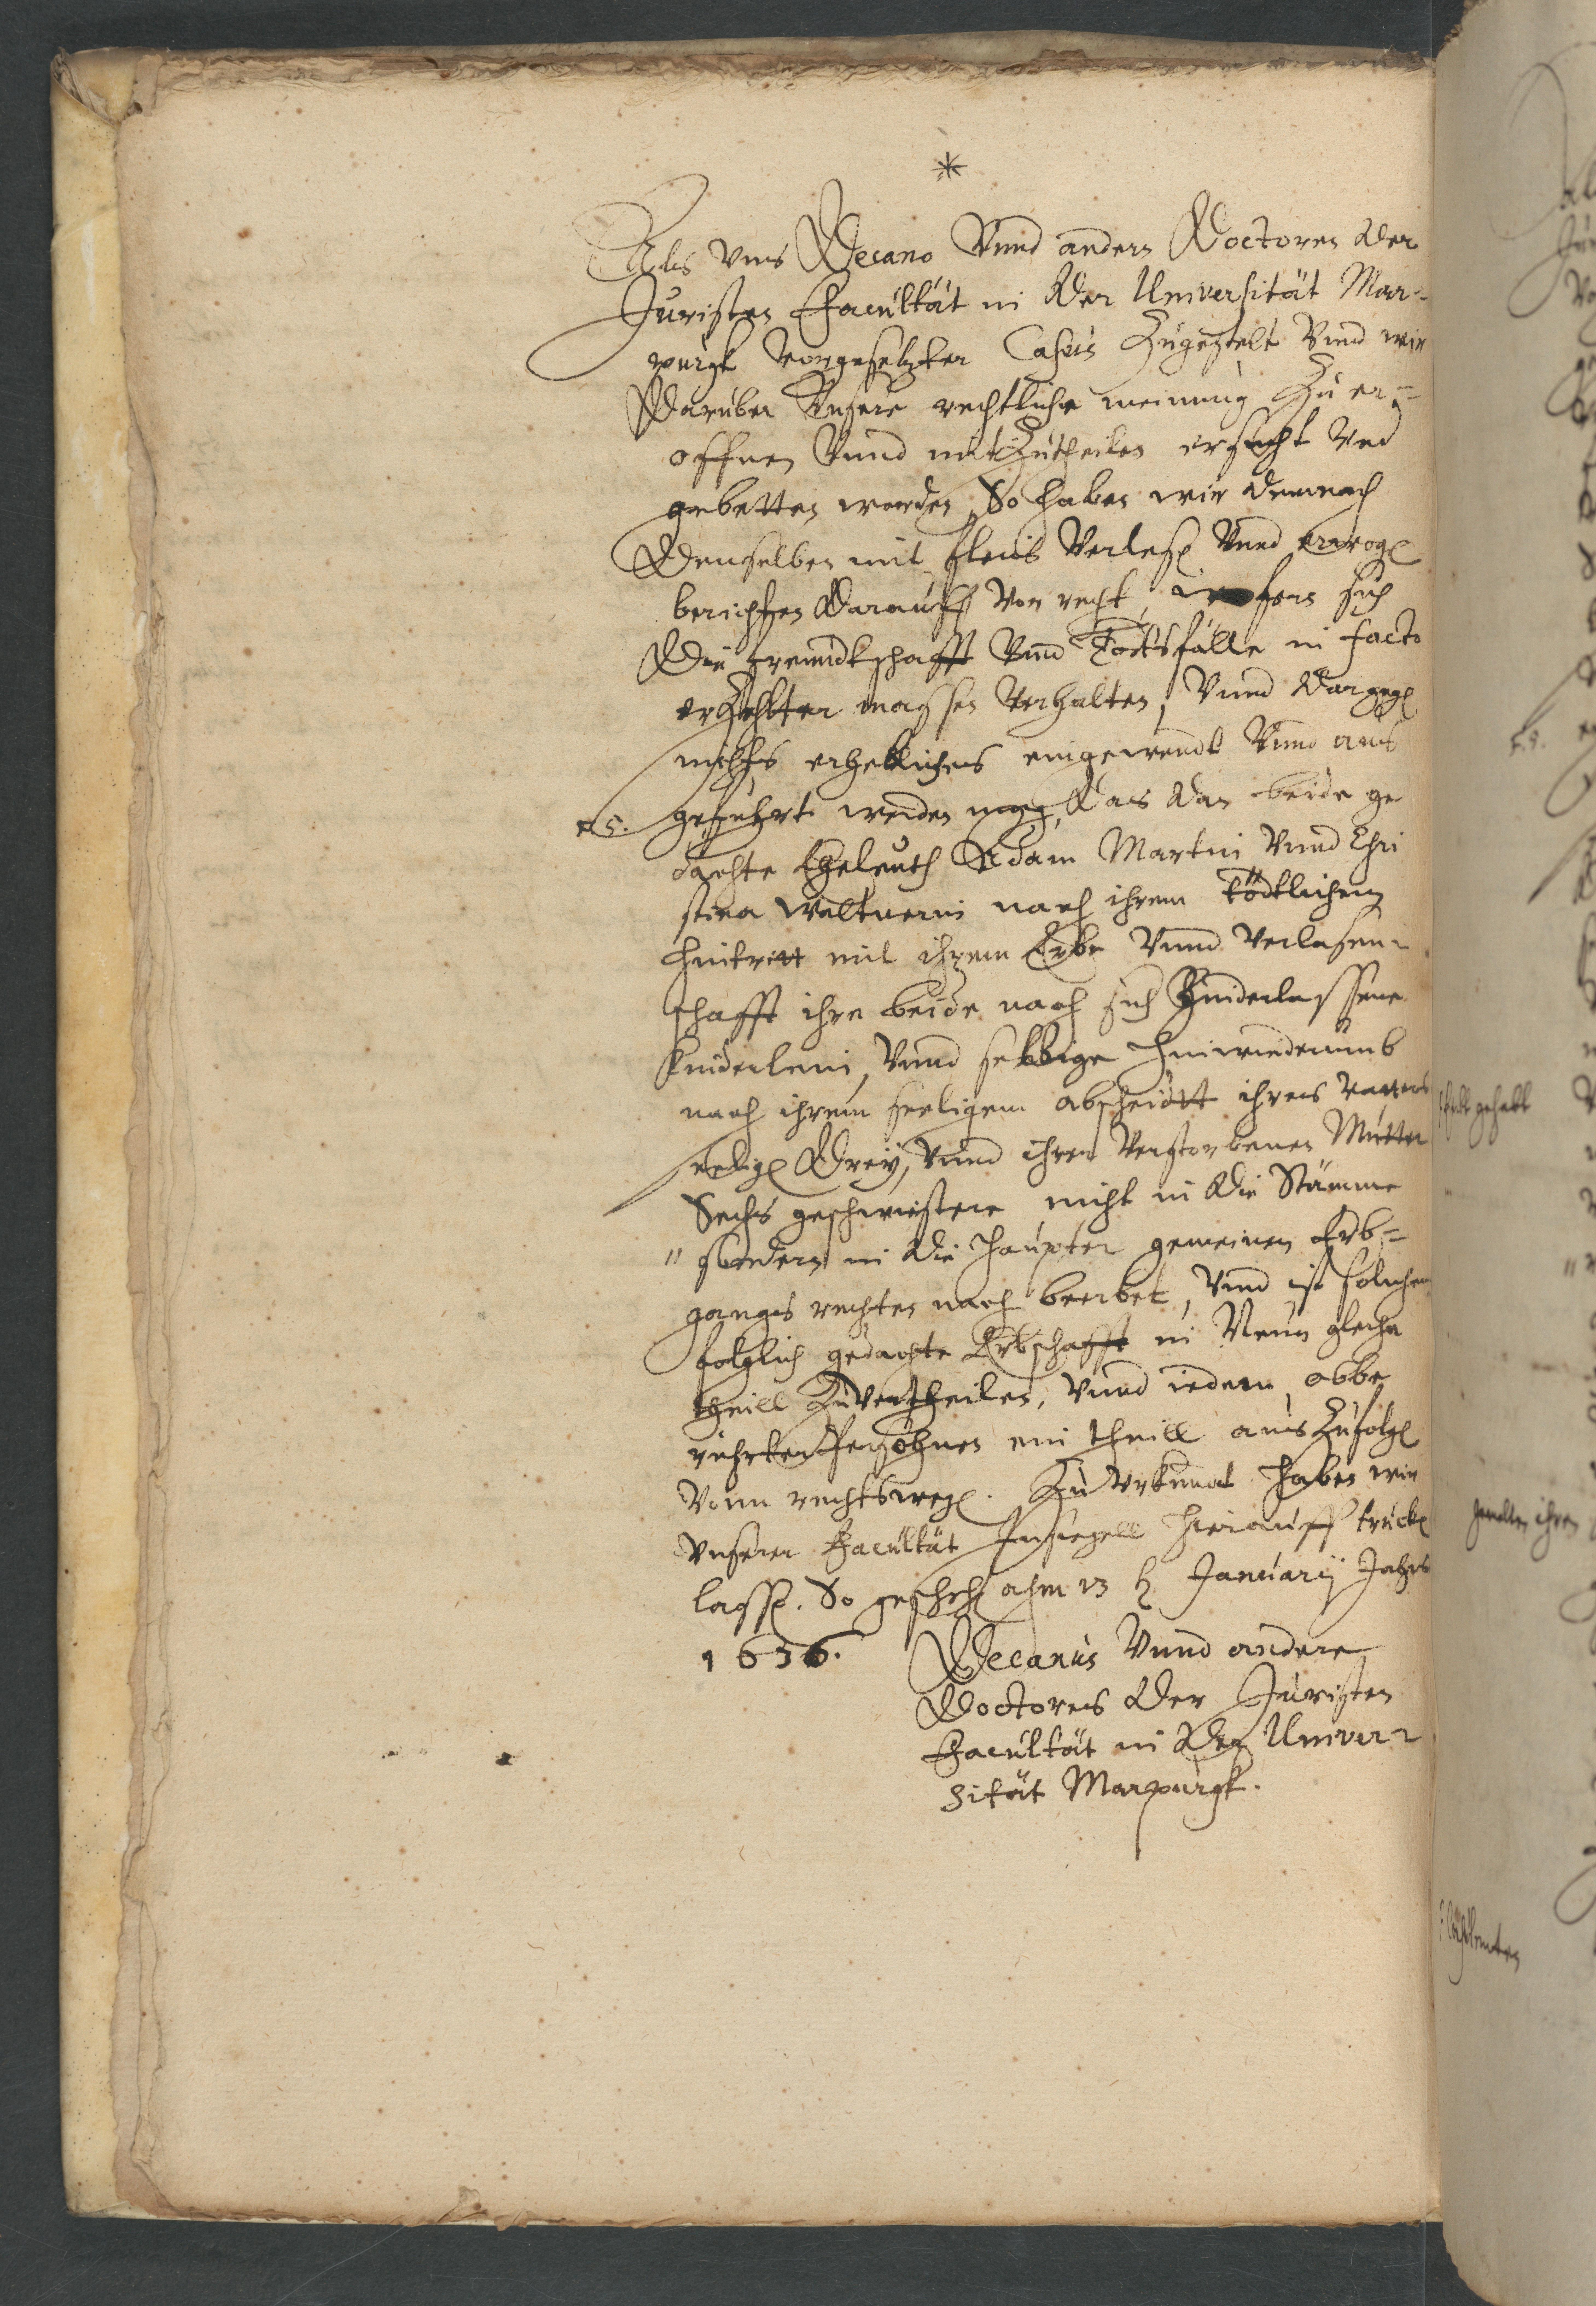 *
Als Vns Decano Vnnd andern Doctoren der
Juristen Facultät in der Universität Mar-
purgk vorgesetzter Casus Zugestelt Vnnd wir
Darüber Vnsere rechtliche meinung Zu er-
offnen Vnnd mitZutheilen ersucht Vnd
gebetten worden, So haben wir demnach
Denselben mit fleis Verlesen Vnnd erwogen
berichten Darauff Von recht, fern sich
Die freundtschafft Vnnd Todtsfälle in facto
erZehlter massen Verhalten, Vnnd dargegen
nichts erheblichens eingewendt Vnnd aus
geführt werden mag, Das dan beide ge
dachte Eheleuth Adam Martin Vnnd Chri
stina Weltnerin nach ihrem tödtlichem
Hintritt mit ihrem Erbe Vnnd Verlasen-
schafft ihre beide nach sich Hinderlassene
Kinderlein, Vnnd selbige Hinwiederumb
nach ihrem seeligem abscheidtt ihres Vatters
seeligen Drey, Vnnd ihrer Verstorbenen Mutter
Sechs geschwistere nicht in die Stämme
" sondern in die Haupter gemeinen Erb-
gangs rechten nach beerbet, Vnnd ist solchem
folglich gedachte Erbschafft in Neun gleiche
theill Zuvertheilen, Vnnd iedem obbe
rührten Persohnen ein theill aus Zufolgen
Vonn rechtswegen. Zu Vrkundt haben wir
Vnserer Facultät Insiegell hierauff trücken
lassen. So geschehen ahm 13 h Januarÿ Jahrs
1636.
Decanus Vnnd andere
Doctores der Juristen
Facultät in der Univer-
sität Marpurgk.